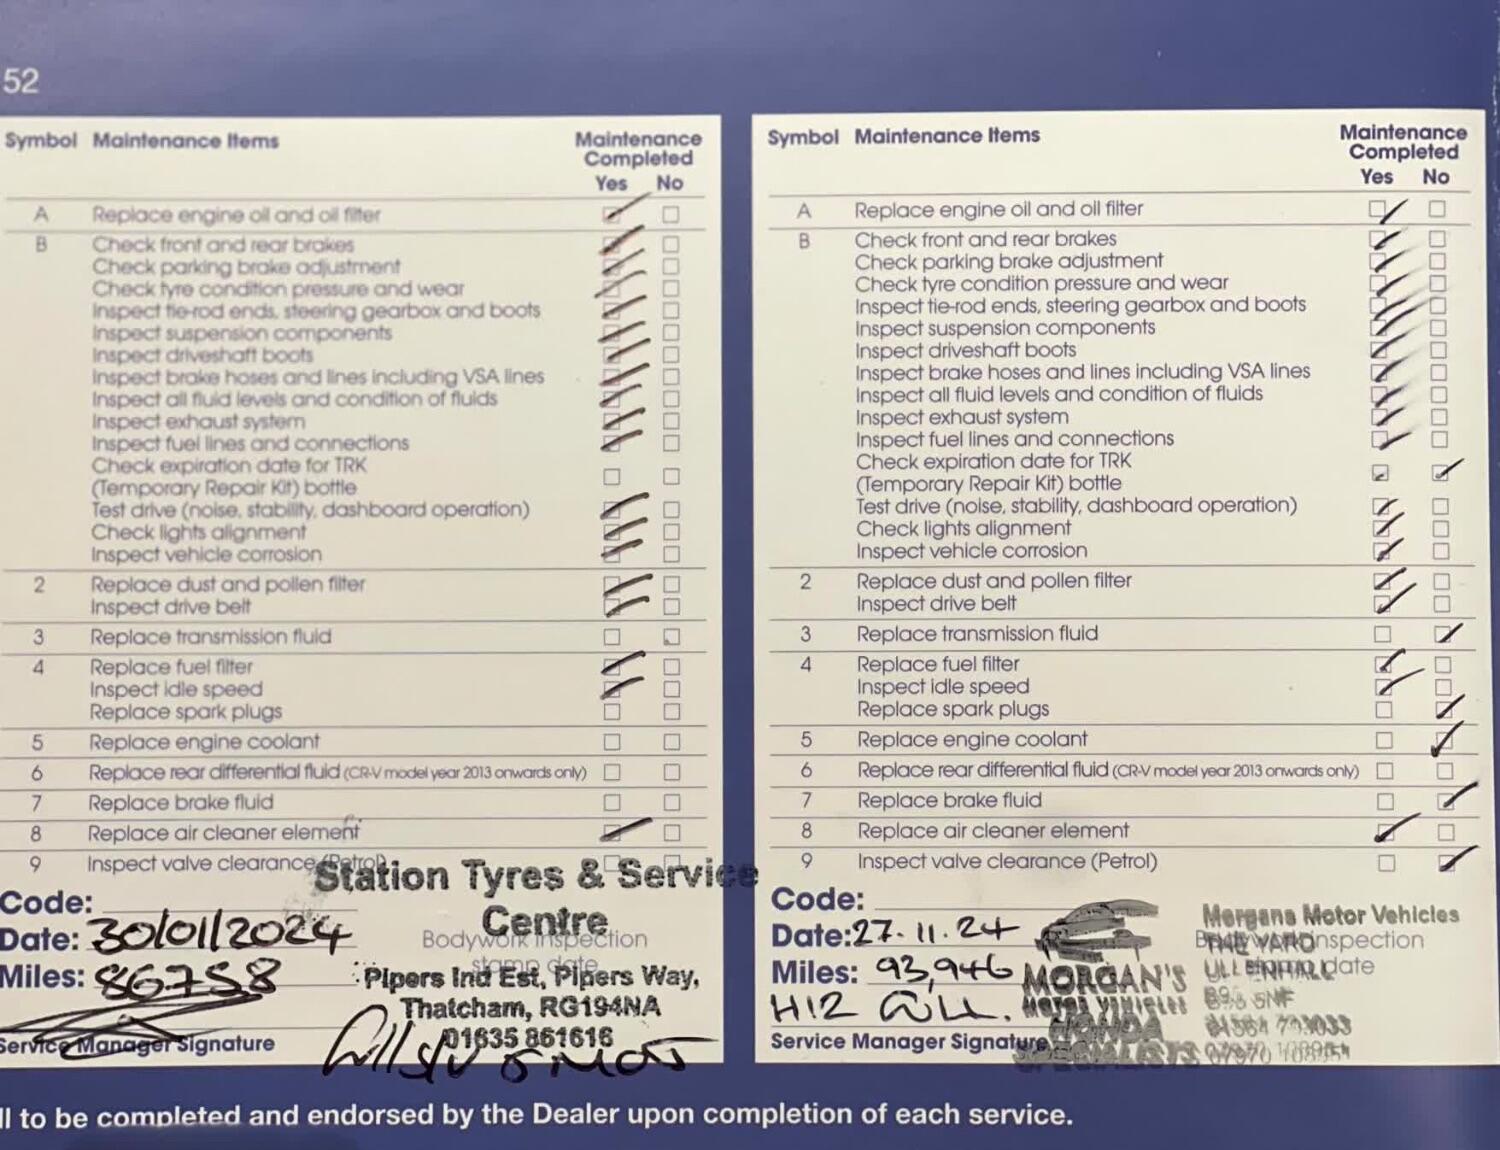 52
Symbol Maintenance Items Maintenance Completed
Yes No
A Replace engine oil and oil filter
B Check front and rear brakes
Check parking brake adjustment
Check tyre condition pressure and wear
Inspect tie-rod ends, steering gearbox and boots
Inspect suspension components
Inspect driveshaft boots
Inspect brake hoses and lines including VSA lines
Inspect all fluid levels and condition of fluids
Inspect exhaust system
Inspect fuel lines and connections
Check expiration date for TRK
(Temporary Repair Kit) bottle
Test drive (noise, stability, dashboard operation)
Check lights alignment
Inspect vehicle corrosion
2 Replace dust and pollen filter
Inspect drive belt
3 Replace transmission fluid
4 Replace fuel filter
Inspect idle speed
Replace spark plugs
5 Replace engine coolant
6 Replace rear differential fluid (CR-V model year 2013 onwards only)
7 Replace brake fluid
8 Replace air cleaner element
9 Inspect valve clearance (Petrol)
Station Tyres & Service
Centre
Pipers Ind Est, Pipers Way,
Thatcham, RG194NA
01635 861616
Code:
Date: 30/01/2024
Miles: 86758
Bodywork inspection
stamp date
Service Manager Signature
Symbol Maintenance Items Maintenance Completed
Yes No
A Replace engine oil and oil filter
B Check front and rear brakes
Check parking brake adjustment
Check tyre condition pressure and wear
Inspect tie-rod ends, steering gearbox and boots
Inspect suspension components
Inspect driveshaft boots
Inspect brake hoses and lines including VSA lines
Inspect all fluid levels and condition of fluids
Inspect exhaust system
Inspect fuel lines and connections
Check expiration date for TRK
(Temporary Repair Kit) bottle
Test drive (noise, stability, dashboard operation)
Check lights alignment
Inspect vehicle corrosion
2 Replace dust and pollen filter
Inspect drive belt
3 Replace transmission fluid
4 Replace fuel filter
Inspect idle speed
Replace spark plugs
5 Replace engine coolant
6 Replace rear differential fluid (CR-V model year 2013 onwards only)
7 Replace brake fluid
8 Replace air cleaner element
9 Inspect valve clearance (Petrol)
Code:
Date: 27.11.24
Miles: 93,946
Service Manager Signature
MORGAN'S
MOTOR VEHICLES
HONDA
SPECIALISTS
Morgans Motor Vehicles
THE YARD
ULLENHALL
inspection
date
ll to be completed and endorsed by the Dealer upon completion of each service.